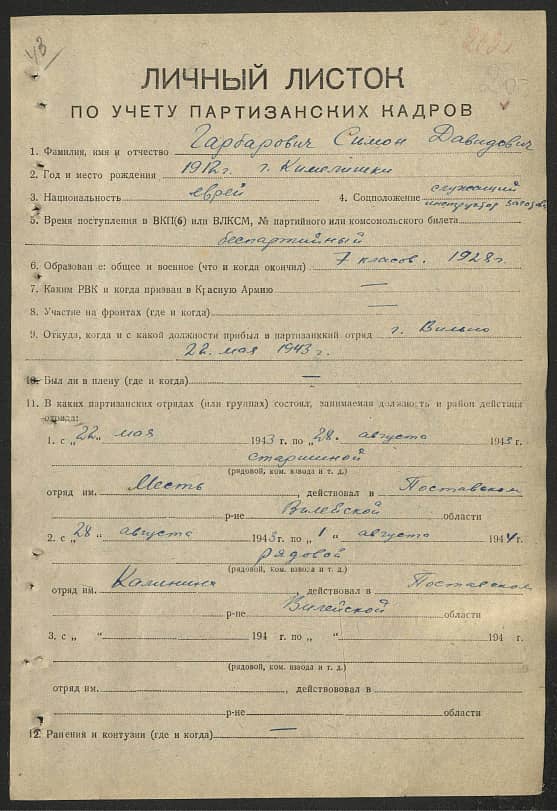 43
ЛИЧНЫЙ ЛИСТОК
ПО УЧЕТУ ПАРТИЗАНСКИХ КАДРОВ
1. Фамилия, имя и отчество Гарбарович Симон Давидович
2. Год и место рождения 1912г. г. Кимелишки
3. Национальность еврей 4. Соцположение служащий
инструктор
5. Время поступления в ВКП(б) или ВЛКСМ, № партийного или комсомольского билета
беспартийный
6. Образован е: общее и военное (что и когда окончил) 7 класов. 1928г.
7. Каким РВК и когда призван в Красную Армию —
8. Участие на фронтах (где и когда) —
9. Откуда, когда и с какой должности прибыл в партизанккий отряд г. Вильно
22. мая 1943г.
10. Был ли в плену (где и когда) —
11. В каких партизанских отрядах (или группах) состоял, занимаемая должность и район действия
отряда:
1. с „22" мая 1943 г. по „28. августа 1943 г.
старшиной
(рядовой, ком. взвода и т. д.)
отряд им. Месть, действовал в Поставском
р-не Вилейской области
2. с „28" августа 1943г. по „1" августа 1944 г.
рядовой
(рядовой, ком. взвода и т. д.)
отряд им. Калинина действовал в Поставском
р-не Вилейской области
3. с „ " 194 г. по „ " 194 г.
(рядовой, ком. взвода и т. д.)
отряд им. , действововал в
р-не области
12. Ранения и контузии (где и когда) —